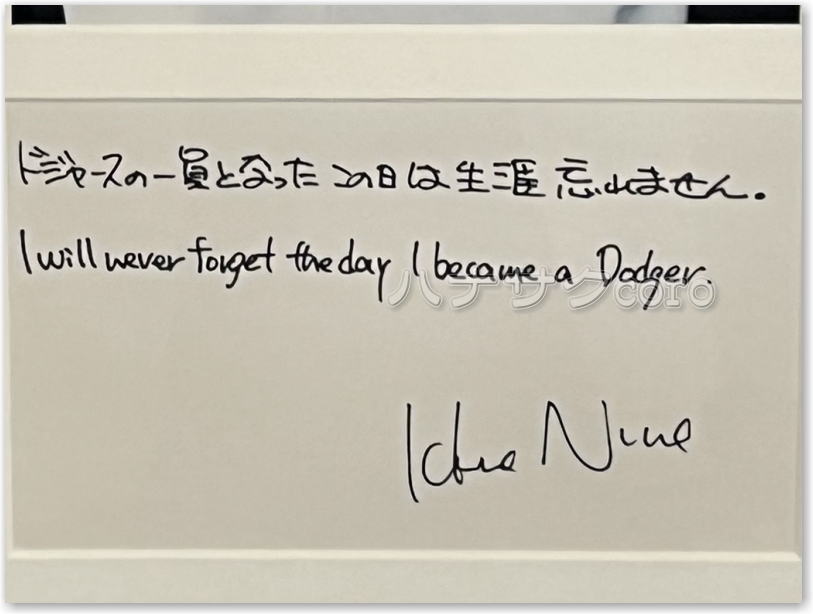 ドジャースの一員となったこの日は生涯忘れません。
I will never forget the day I became a Dodger.
ハナサクcoro